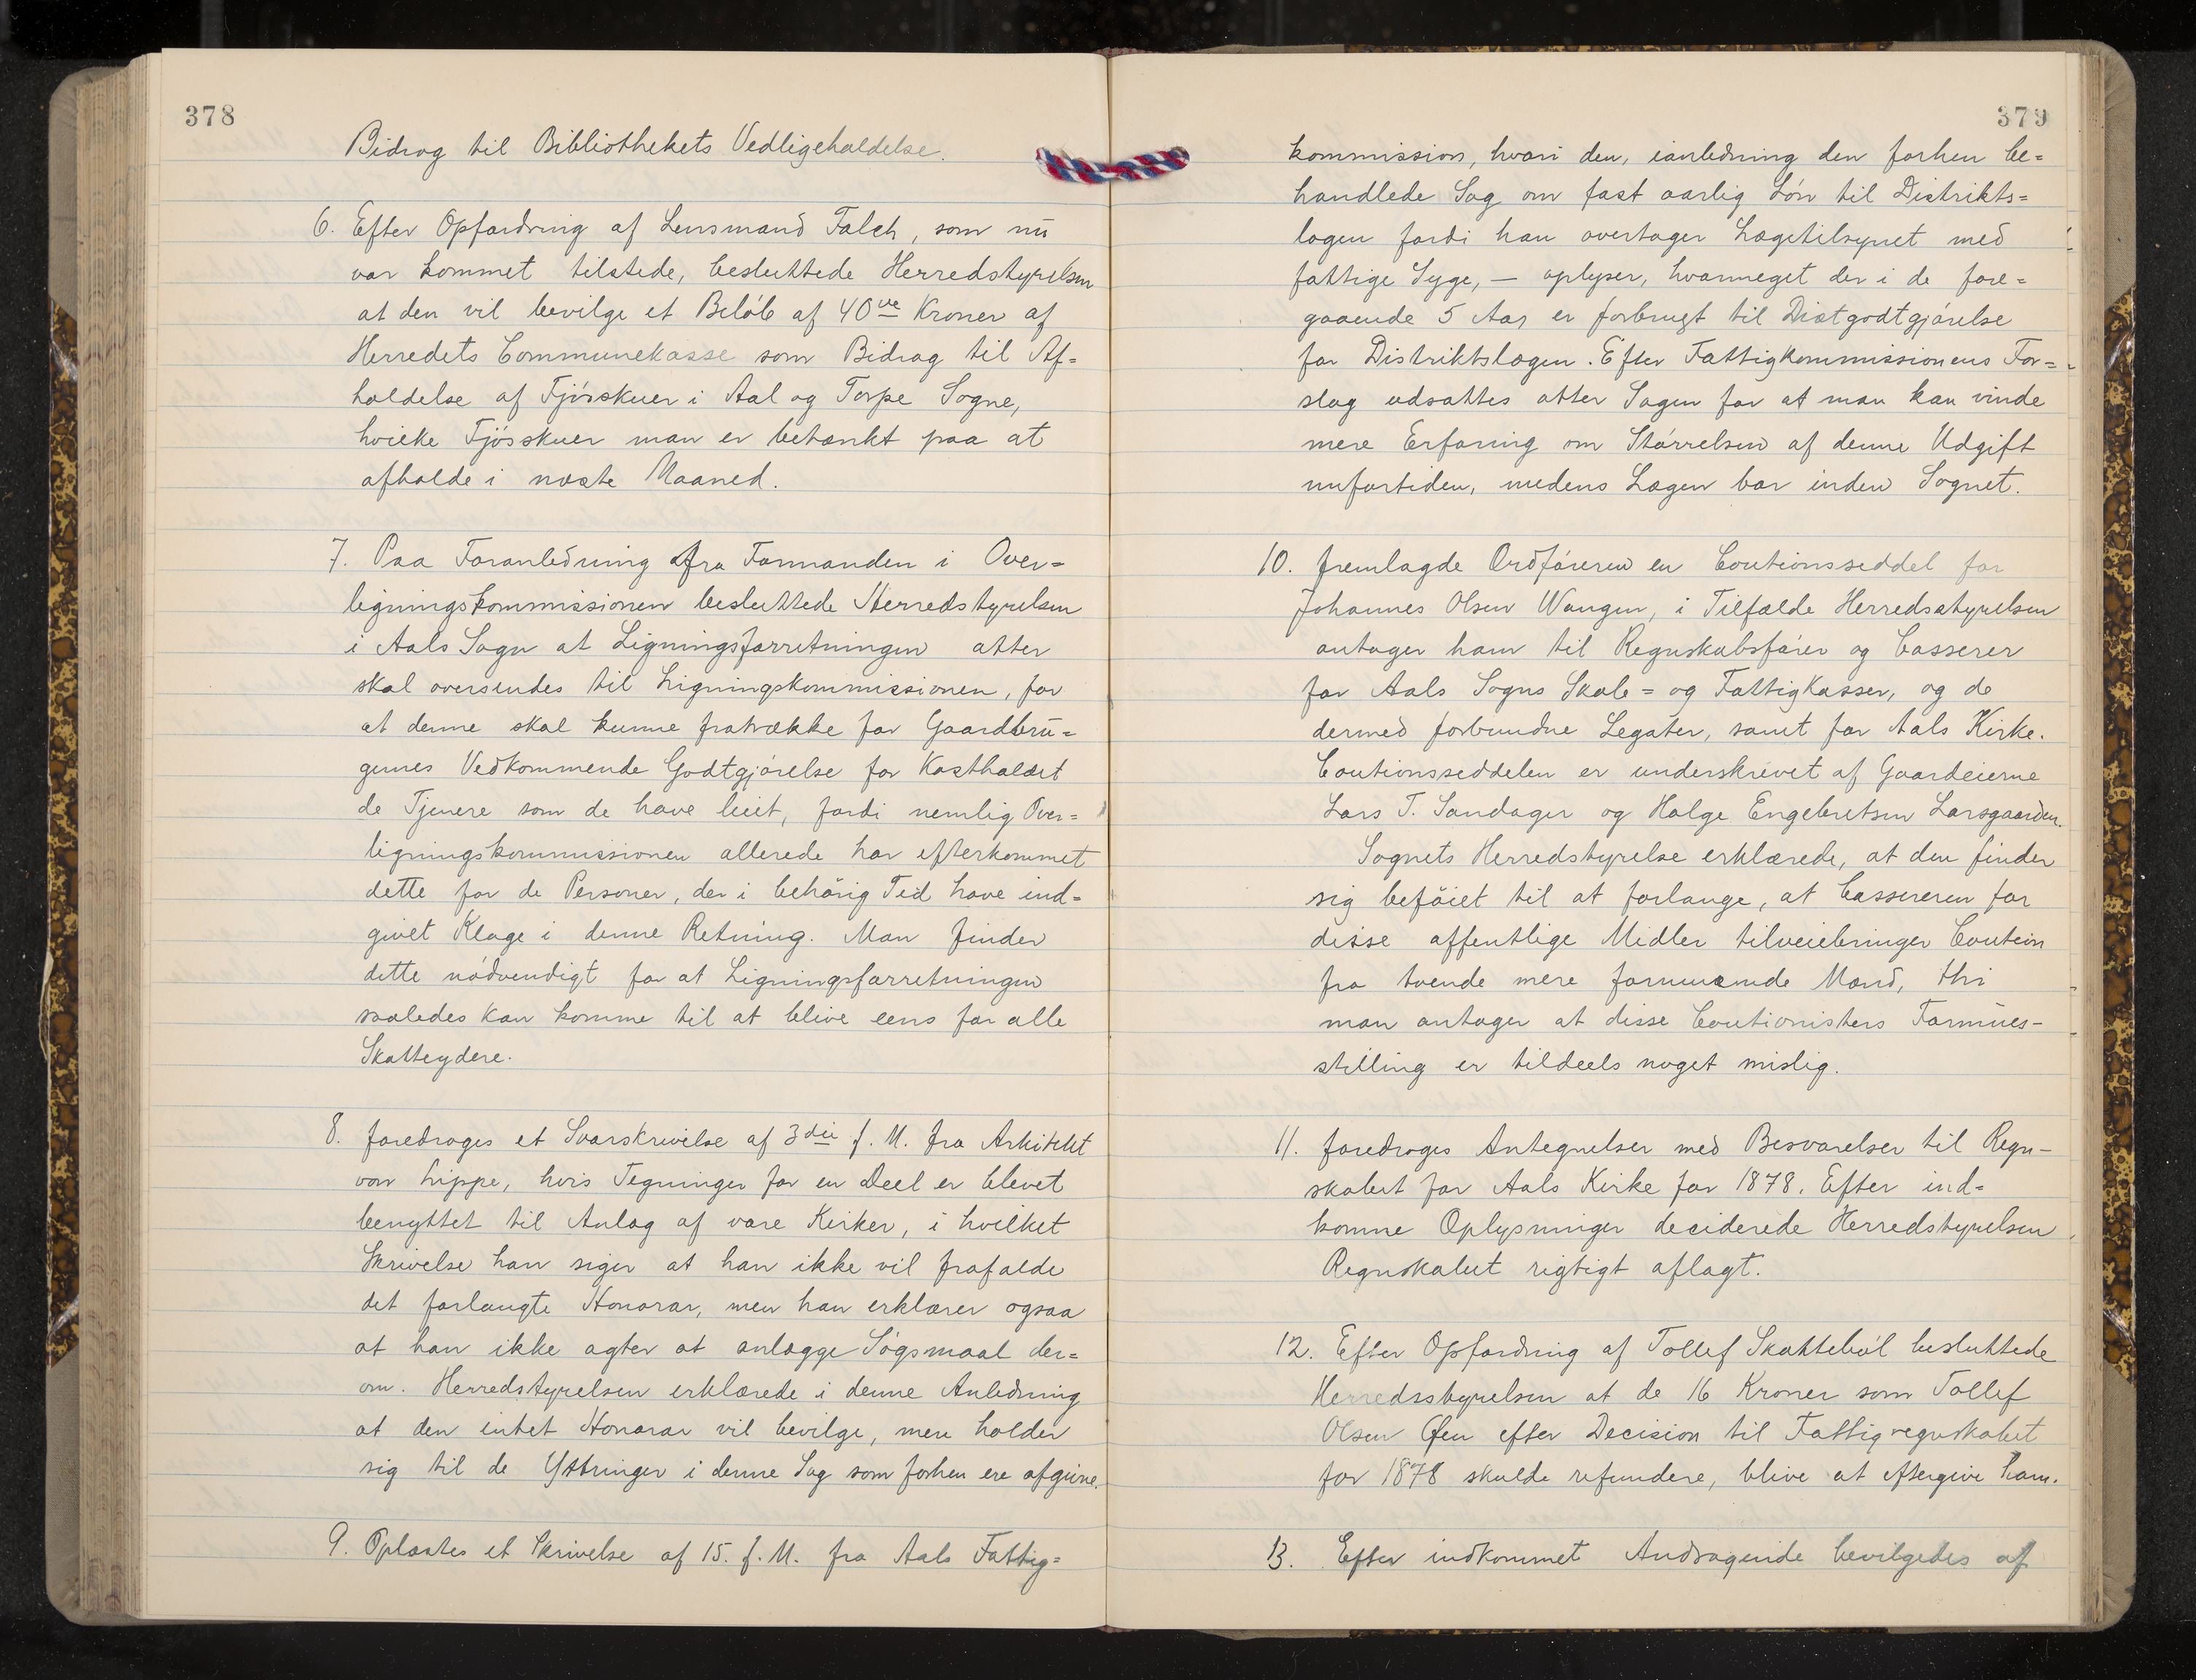 378
Bidrag til Bibliothekets Vedligeholdelse.
6. Efter Opfordring af Lensmand Falch, som nu
var kommet tilstede, besluttede Herredstyrelsen
at den vil bevilge et Beløb af 40ve Kroner af
Herredets Communekasse som Bidrag til Af=
holdelse af Fjøsskuer i Aal og Torpe Sogne,
hvilke Fjøsskuer man er betænkt paa at
afholde i næste Maaned.
7. Paa Foranledning fra Formanden i Over=
ligningskommissionen besluttede Herredstyrelsen
i Aals Sogn at Ligningsforretningen atter
skal oversendes til Ligningskommissionen, for
at denne skal kunne fratrække for Gaardbru=
gernes Vedkommende Godtgjørelse for Kostholdet
de Tjenere som de have leiet, fordi nemlig Over=
ligningskommissionen allerede har efterkommet
dette for de Personer, der i behörig Tid have ind=
givet Klage i denne Retning. Man finder
dette nödvendigt for at Ligningsforretningen
saaledes kan komme til at blive eens for alle
Skatteydere.
8. foredroges et Svarskrivelse af 3die f. M. fra Arkitekt
von Lippe, hvis Tegninger for en Deel er blevet
benyttet til Anlæg af vore Kirker, i hvilket
Skrivelse han siger at han ikke vil frafalde
det forlangte Honorar, men han erklærer ogsaa
at han ikke agter at anlægge Søgsmaal der=
om. Herredstyrelsen erklærede i denne Anledning
at den intet Honorar vil bevilge, men holder
sig til de Yttringer i denne Sag som forhen ere afgivne.
9. Oplæstes et Skrivelse af 15. f. M. fra Aals Fattig=
379
kommission, hvori den, ianledning den forhen be=
handlede Sag om fast aarlig Løn til Distrikts=
lægen fordi han overtager Lægetilsynet med
fattige Syge, — oplyser, hvormeget der i de fore=
gaaende 5 Aar er forbrugt til Diætgodtgjørelse
for Distriktslægen. Efter Fattigkommissionens For=
slag udsattes atter Sagen for at man kan vinde
mere Erfaring om Størrelsen af denne Udgift
nufortiden, medens Lægen bor inden Sognet.
10. fremlagde Ordføreren en Cautionsseddel for
Johannes Olsen Wangen, i Tilfælde Herredsstyrelsen
antager ham til Regnskabsfører og Casserer
for Aals Sogns Skole= og FattigKasser, og de
dermed forbundne Legater, samt for Aals Kirke.
Cautionsseddelen er underskrevet af Gaardeierne
Lars T. Sandager og Holge Engebretsen Larsgaarden.
Sognets Herredstyrelse erklærede, at den finder
sig beføiet til at forlange, at Cassereren for
disse offentlige Midler tilveiebringer Caution
fra tvende mere formuende Mænd, thi
man antager at disse Cautionisters Formues-
stilling er tildeels noget mislig.
11. foredroges Antegnelser med Besvarelser til Regn-
skabet for Aals Kirke for 1878. Efter ind=
komne Oplysninger deciderede Herredstyrelsen
Regnskabet rigtigt aflagt.
12. Efter Opfordring af Tollef Skattebøl besluttede
Herredsstyrelsen at de 16 Kroner som Tollef
Olsen efter Decision til Fattigregnskabet
for 1878 skulde refundere, blive at eftergive ham.
13. Efter indkommet Andragende bevilgedes af